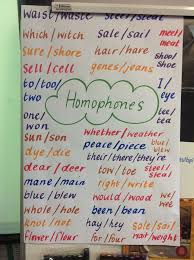 waist/waste steel/steal
which/witch sale/sail meet/meat
sure/shore hair/hare shoo/shoe
sell/cell genes/jeans
to/too/two
Homophones
I/eye
one/won
sun/son whether/weather
dye/die peace/piece blew/blue
their/there/they're
dear/deer tow/toe steel/steal
mane/main right/write
blew/blue would/wood we/wee
whole/hole been/bean
knot/not hay/hey sale/sail
flower/flour for/four wait/weight